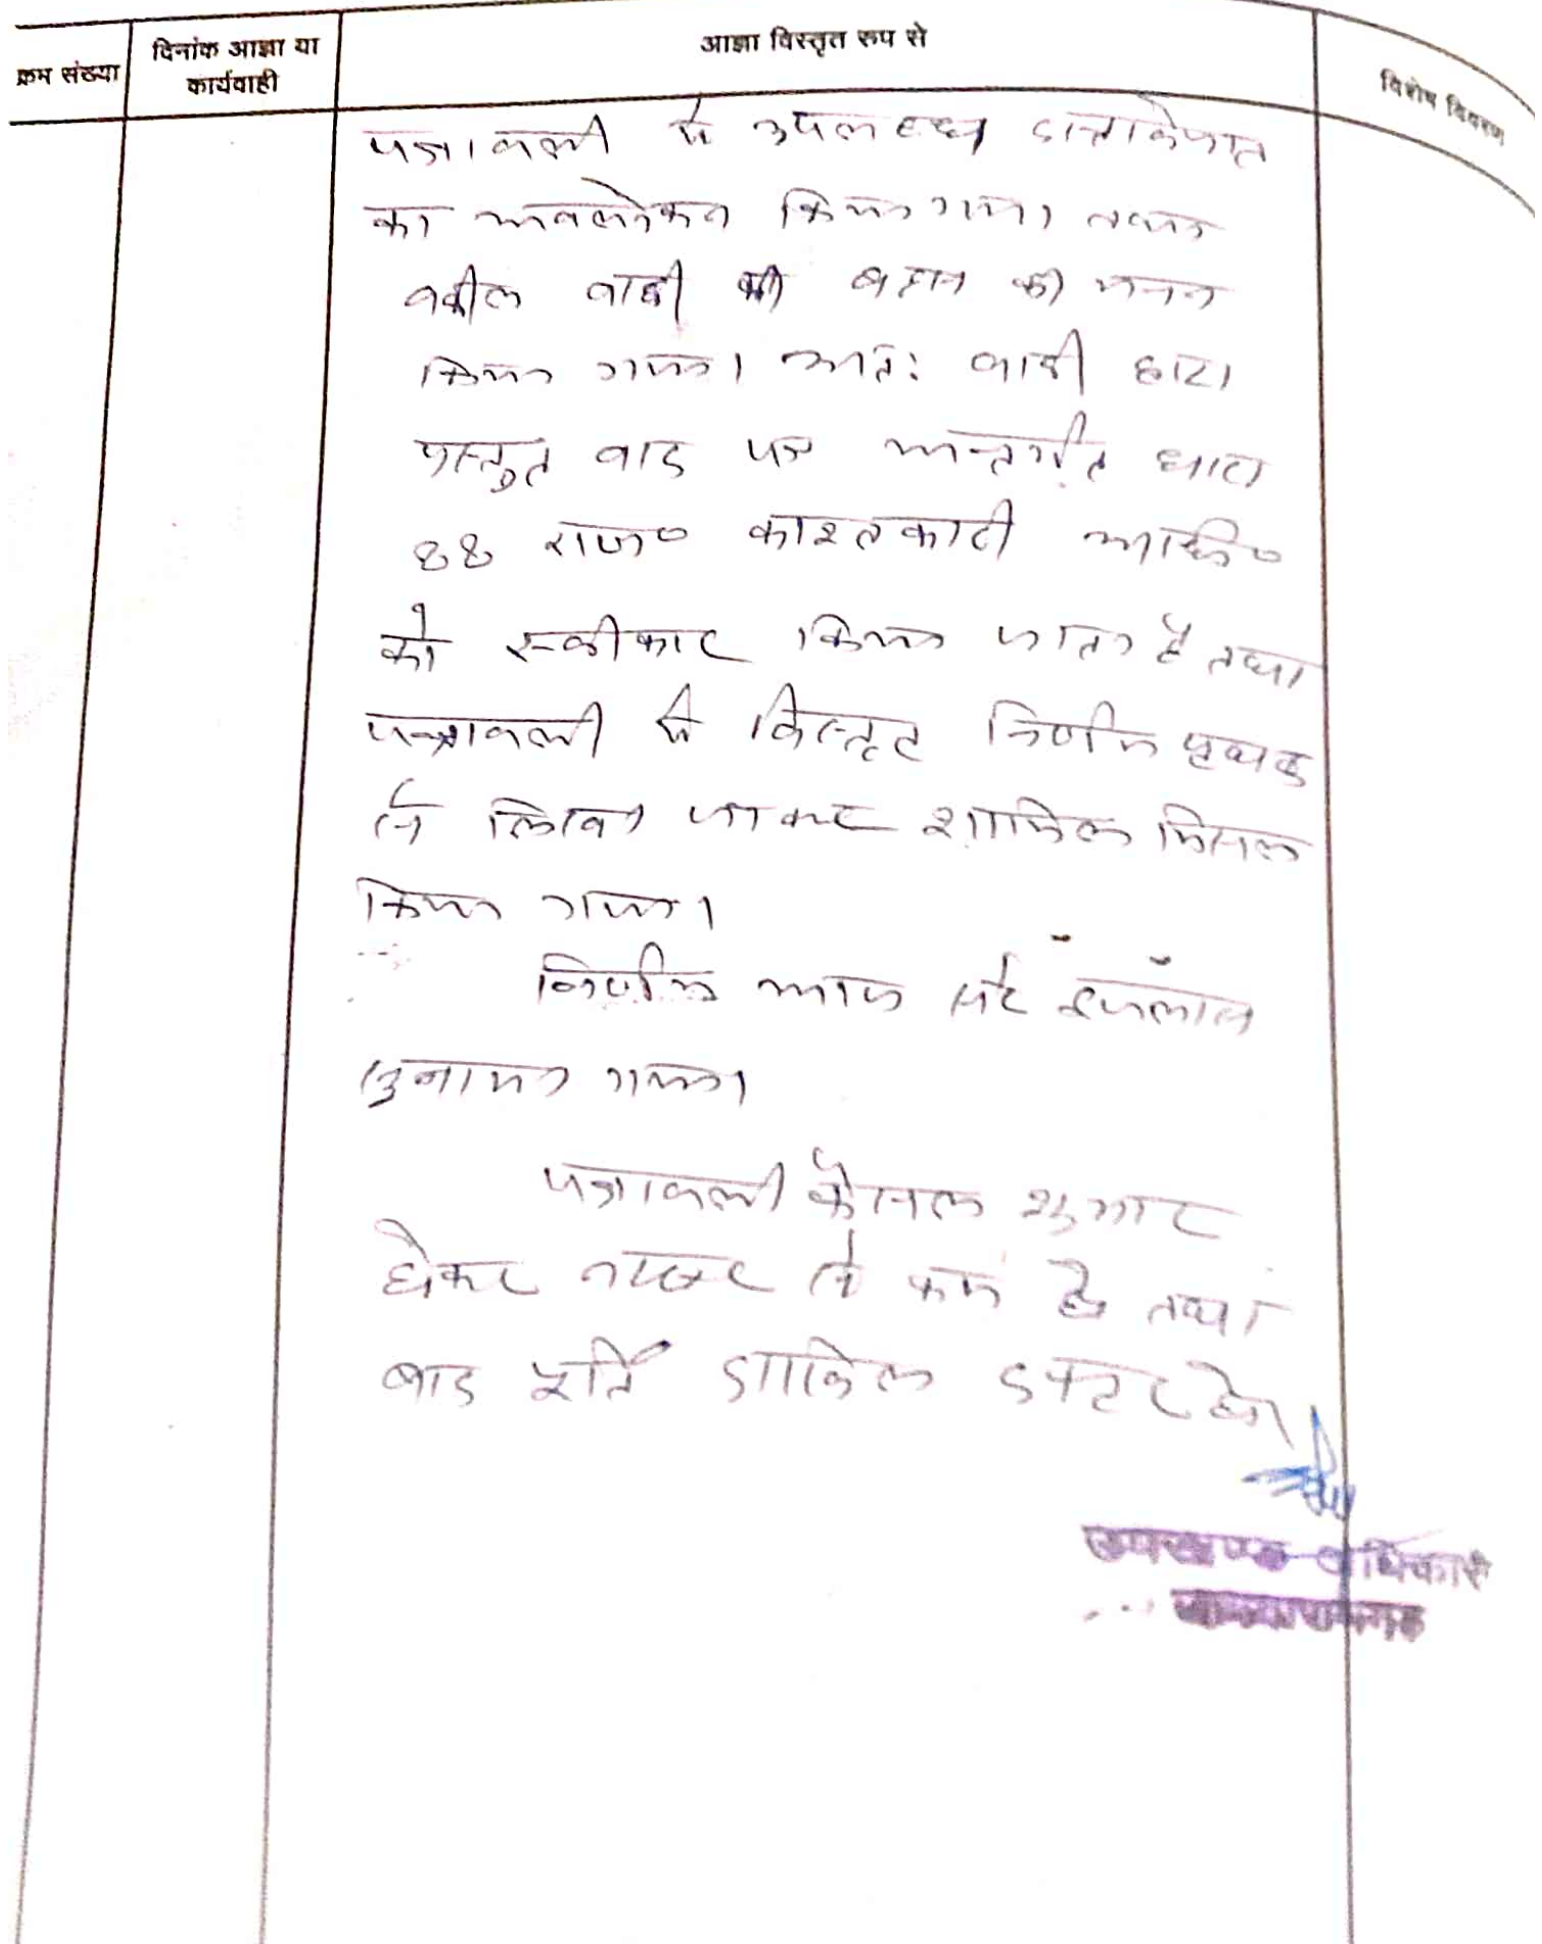 क्रम संख्या
दिनांक आज्ञा या
कार्यवाही
आज्ञा विस्तृत रूप से
विशेष विवरण
पत्रावली में उपलब्ध दस्तावेजात
का अवलोकन किया गया तथा
वकील वादी की बहस को मनन
किया गया। अतः वादी द्वारा
प्रस्तुत वाद पत्र अन्तर्गत धारा
88 राज० काश्तकारी अधि०
को स्वीकार किया जाता है तथा
पत्रावली में विस्तृत निर्णय पृथक
से लिखा जाकर शामिल मिसल
किया गया।
निर्णय आज सरे इजलास
सुनाया गया।
पत्रावली फैसल शुमार
होकर नम्बर से कम हो तथा
बाद पूर्ति दाखिल दफ्टर हो।
उपखण्ड अधिकारी